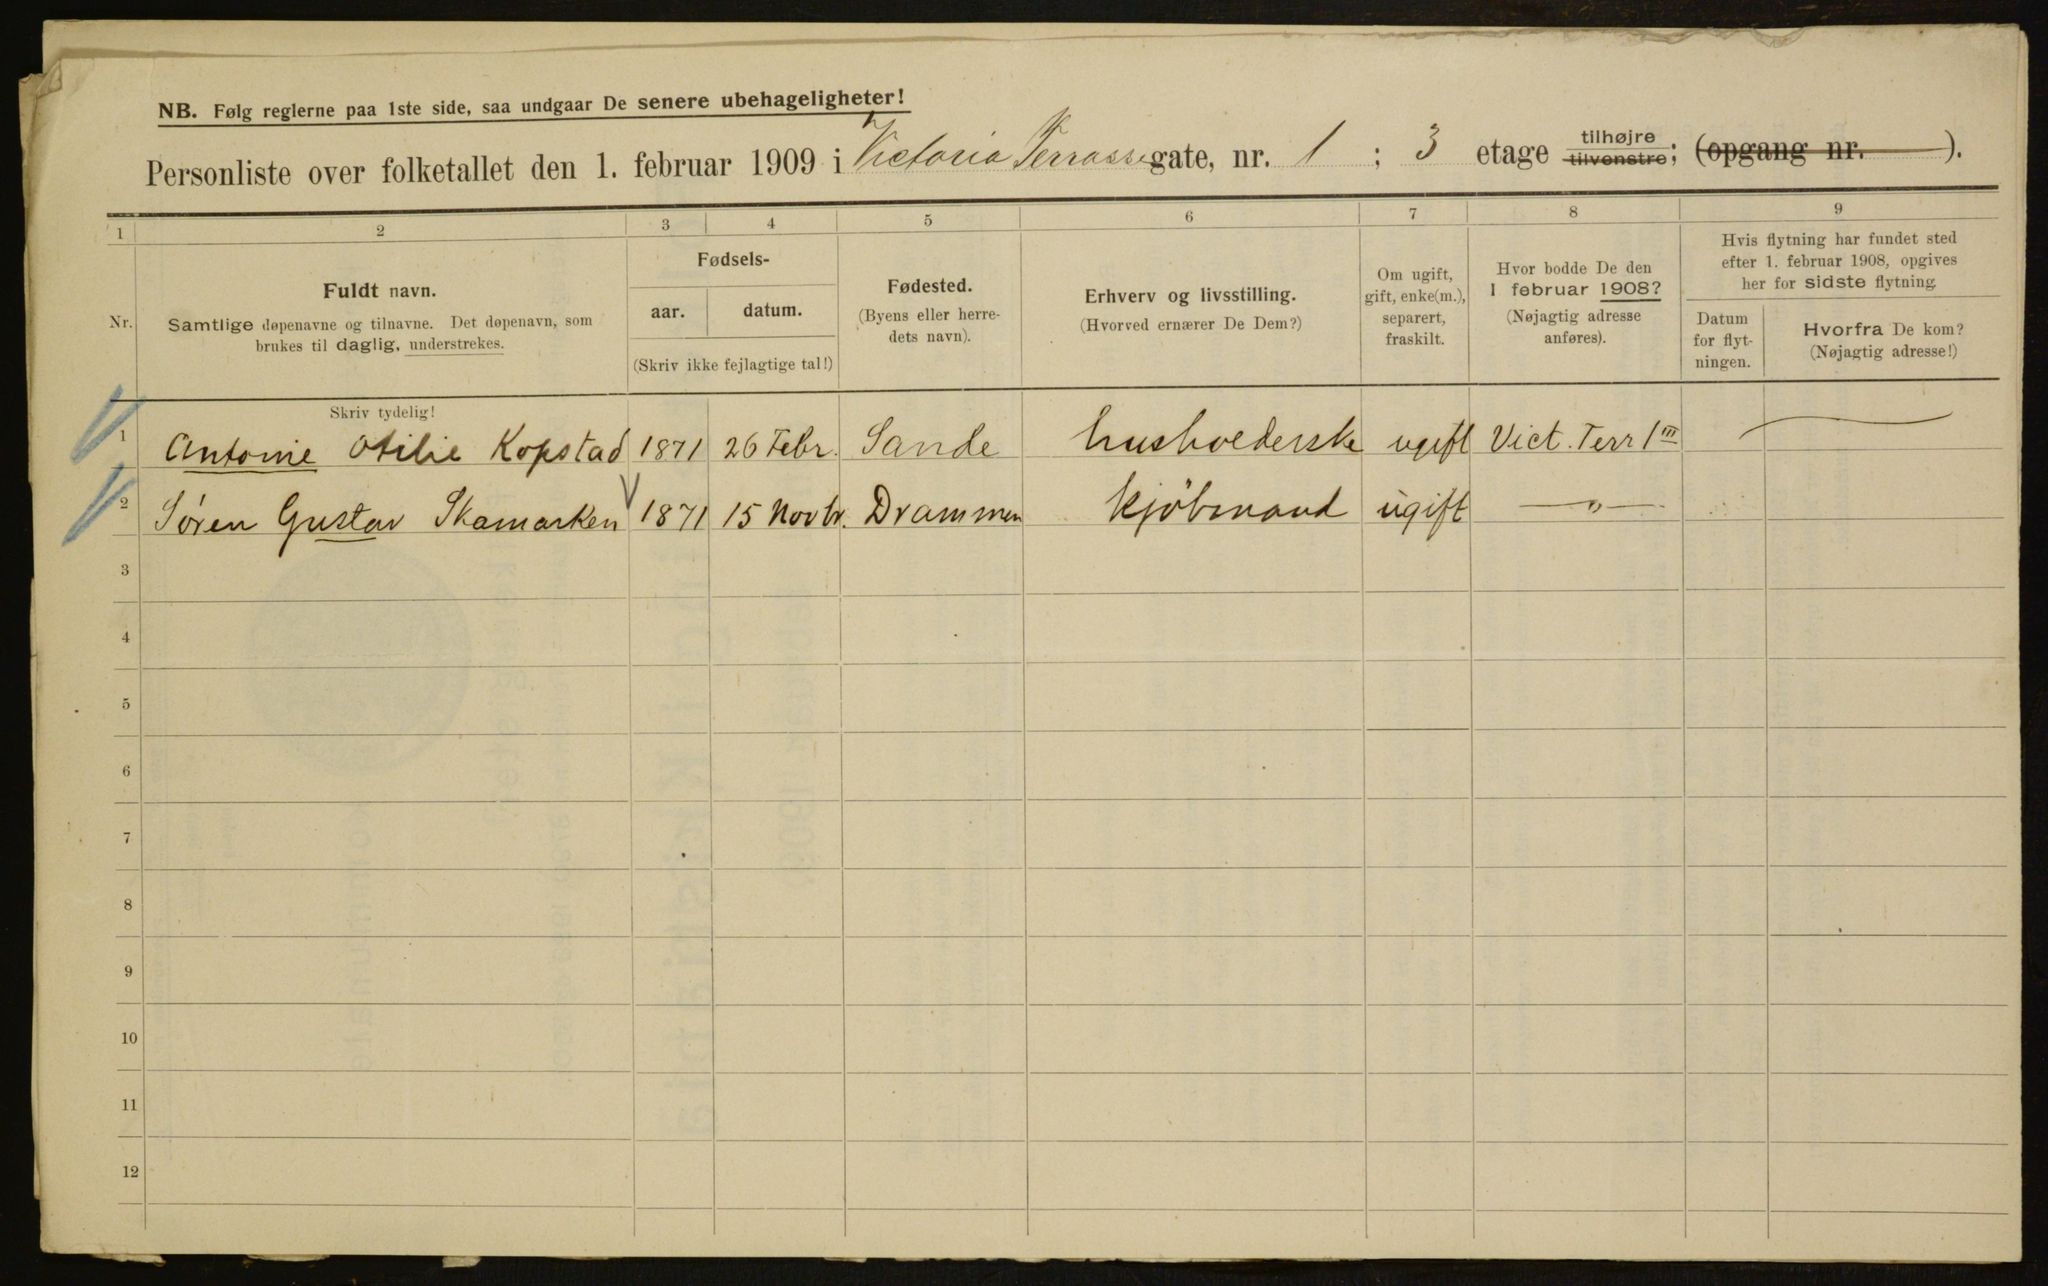 NB. Følg reglerne paa 1ste side, saa undgaar De senere ubehageligheter!
Personliste over folketallet den 1. februar 1909 i Victoria Terrasse gate, nr. 1 ; 3 etage tilhøjre tilvenstre; (opgang nr. ).
1 2 3 4 5 6 7 8 9
Nr.
Fuldt navn.
Samtlige døpenavne og tilnavne. Det døpenavn, som
brukes til daglig, understrekes.
Fødsels-
aar. datum.
(Skriv ikke fejlagtige tal!)
Fødested.
(Byens eller herre-
dets navn).
Erhverv og livsstilling.
(Hvorved ernærer De Dem?)
Om ugift,
gift, enke(m.),
separert,
fraskilt.
Hvor bodde De den
1 februar 1908?
(Nøjagtig adresse
anføres).
Hvis flytning har fundet sted
efter 1. februar 1908, opgives
her for sidste flytning.
Datum
for flyt-
ningen.
Hvorfra De kom?
(Nøjagtig adresse!)
Skriv tydelig!
1 Antonie Otilie Kopstad 1871 26 Febr. Sande husholderske ugift Vict. Terr 1 III
2 Søren Gustav Skamarken 1871 15 Novbr. Drammen kjöbmand ugift —"—
3
4
5
6
7
8
9
10
11
12